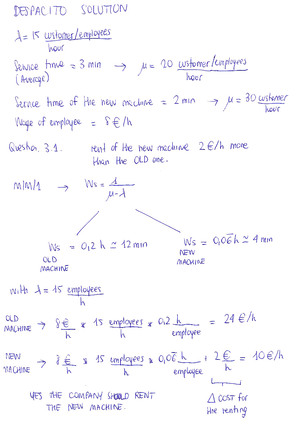 DESPACITO SOLUTION
λ = 15 customer/employees / hour
Service time = 3 min → μ = 20 customer/employees / hour
(Average)
Service time of the new machine = 2 min → μ = 30 customer / hour
Wage of employee = 8 €/h
Question 3.1. rent of the new machine 2 €/h more
than the OLD one.
M/M/1 → Ws = 1 / μ-λ
Ws = 0,2 h ≃ 12 min Ws = 0,06̄ h ≃ 4 min
OLD MACHINE NEW MACHINE
with λ = 15 employees / h
OLD MACHINE → 8 € / h * 15 employees / h * 0,2 h / employee = 24 €/h
NEW MACHINE → 8 € / h * 15 employees / h * 0,06̄ h / employee + 2 € / h = 10 €/h
YES THE COMPANY SHOULD RENT Δ COST for
THE NEW MACHINE. the renting